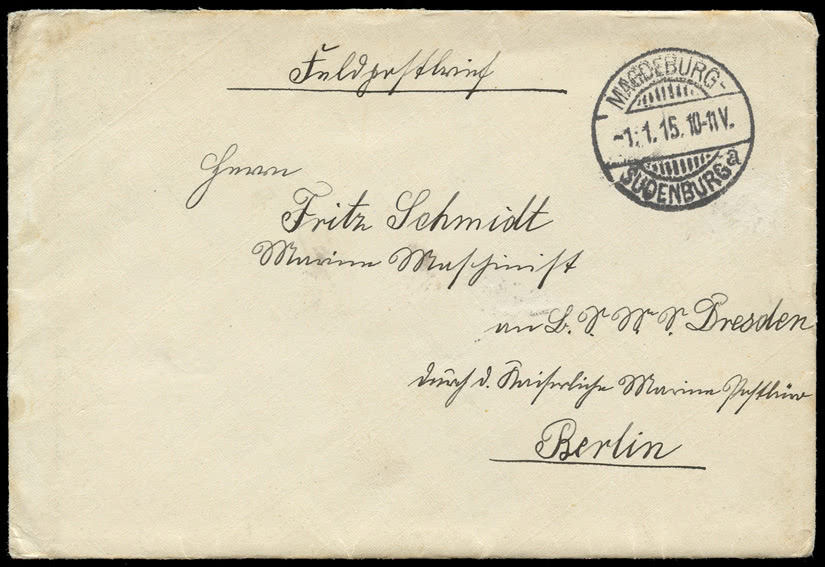 Feldpostbrief
MAGDEBURG-
-1.1.15. 10-11V.
SUDENBURG a
Herrn
Fritz Schmidt
Marine Maschinist
an B. S. M. S. Dresden
durch d. Kaiserliche Marine Postbüro
Berlin